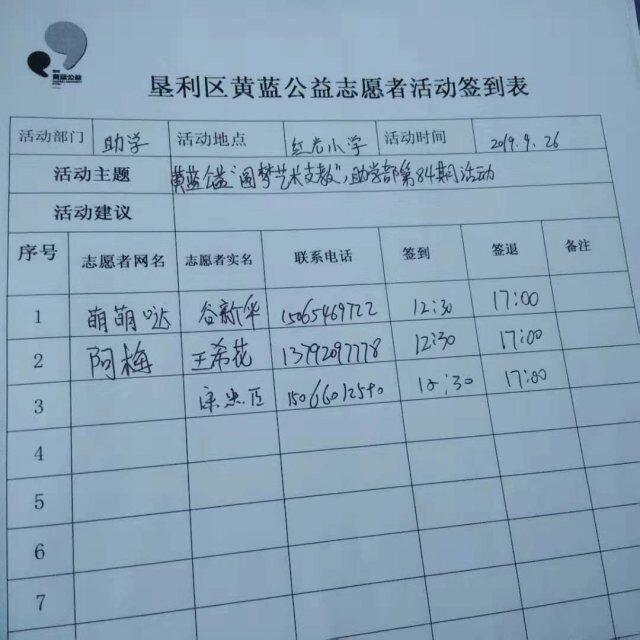 黄蓝公益
垦利区黄蓝公益志愿者活动签到表
活动部门 助学 活动地点 红光小学 活动时间 2019.9.26
活动主题 黄蓝公益"圆梦艺术支教",助学部第84期活动
活动建议
序号 志愿者网名 志愿者实名 联系电话 签到 签退 备注
1 萌萌哒 谷新华 15065469722 12:30 17:00
2 阿梅 王希花 13792097778 12:30 17:00
3 15066012590 12:30 17:00
4
5
6
7